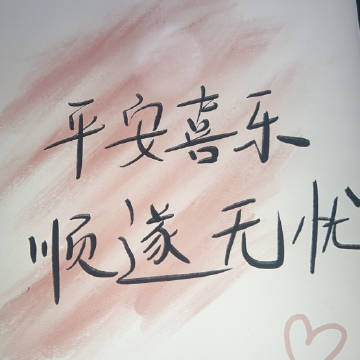 平安喜乐
顺遂无忧